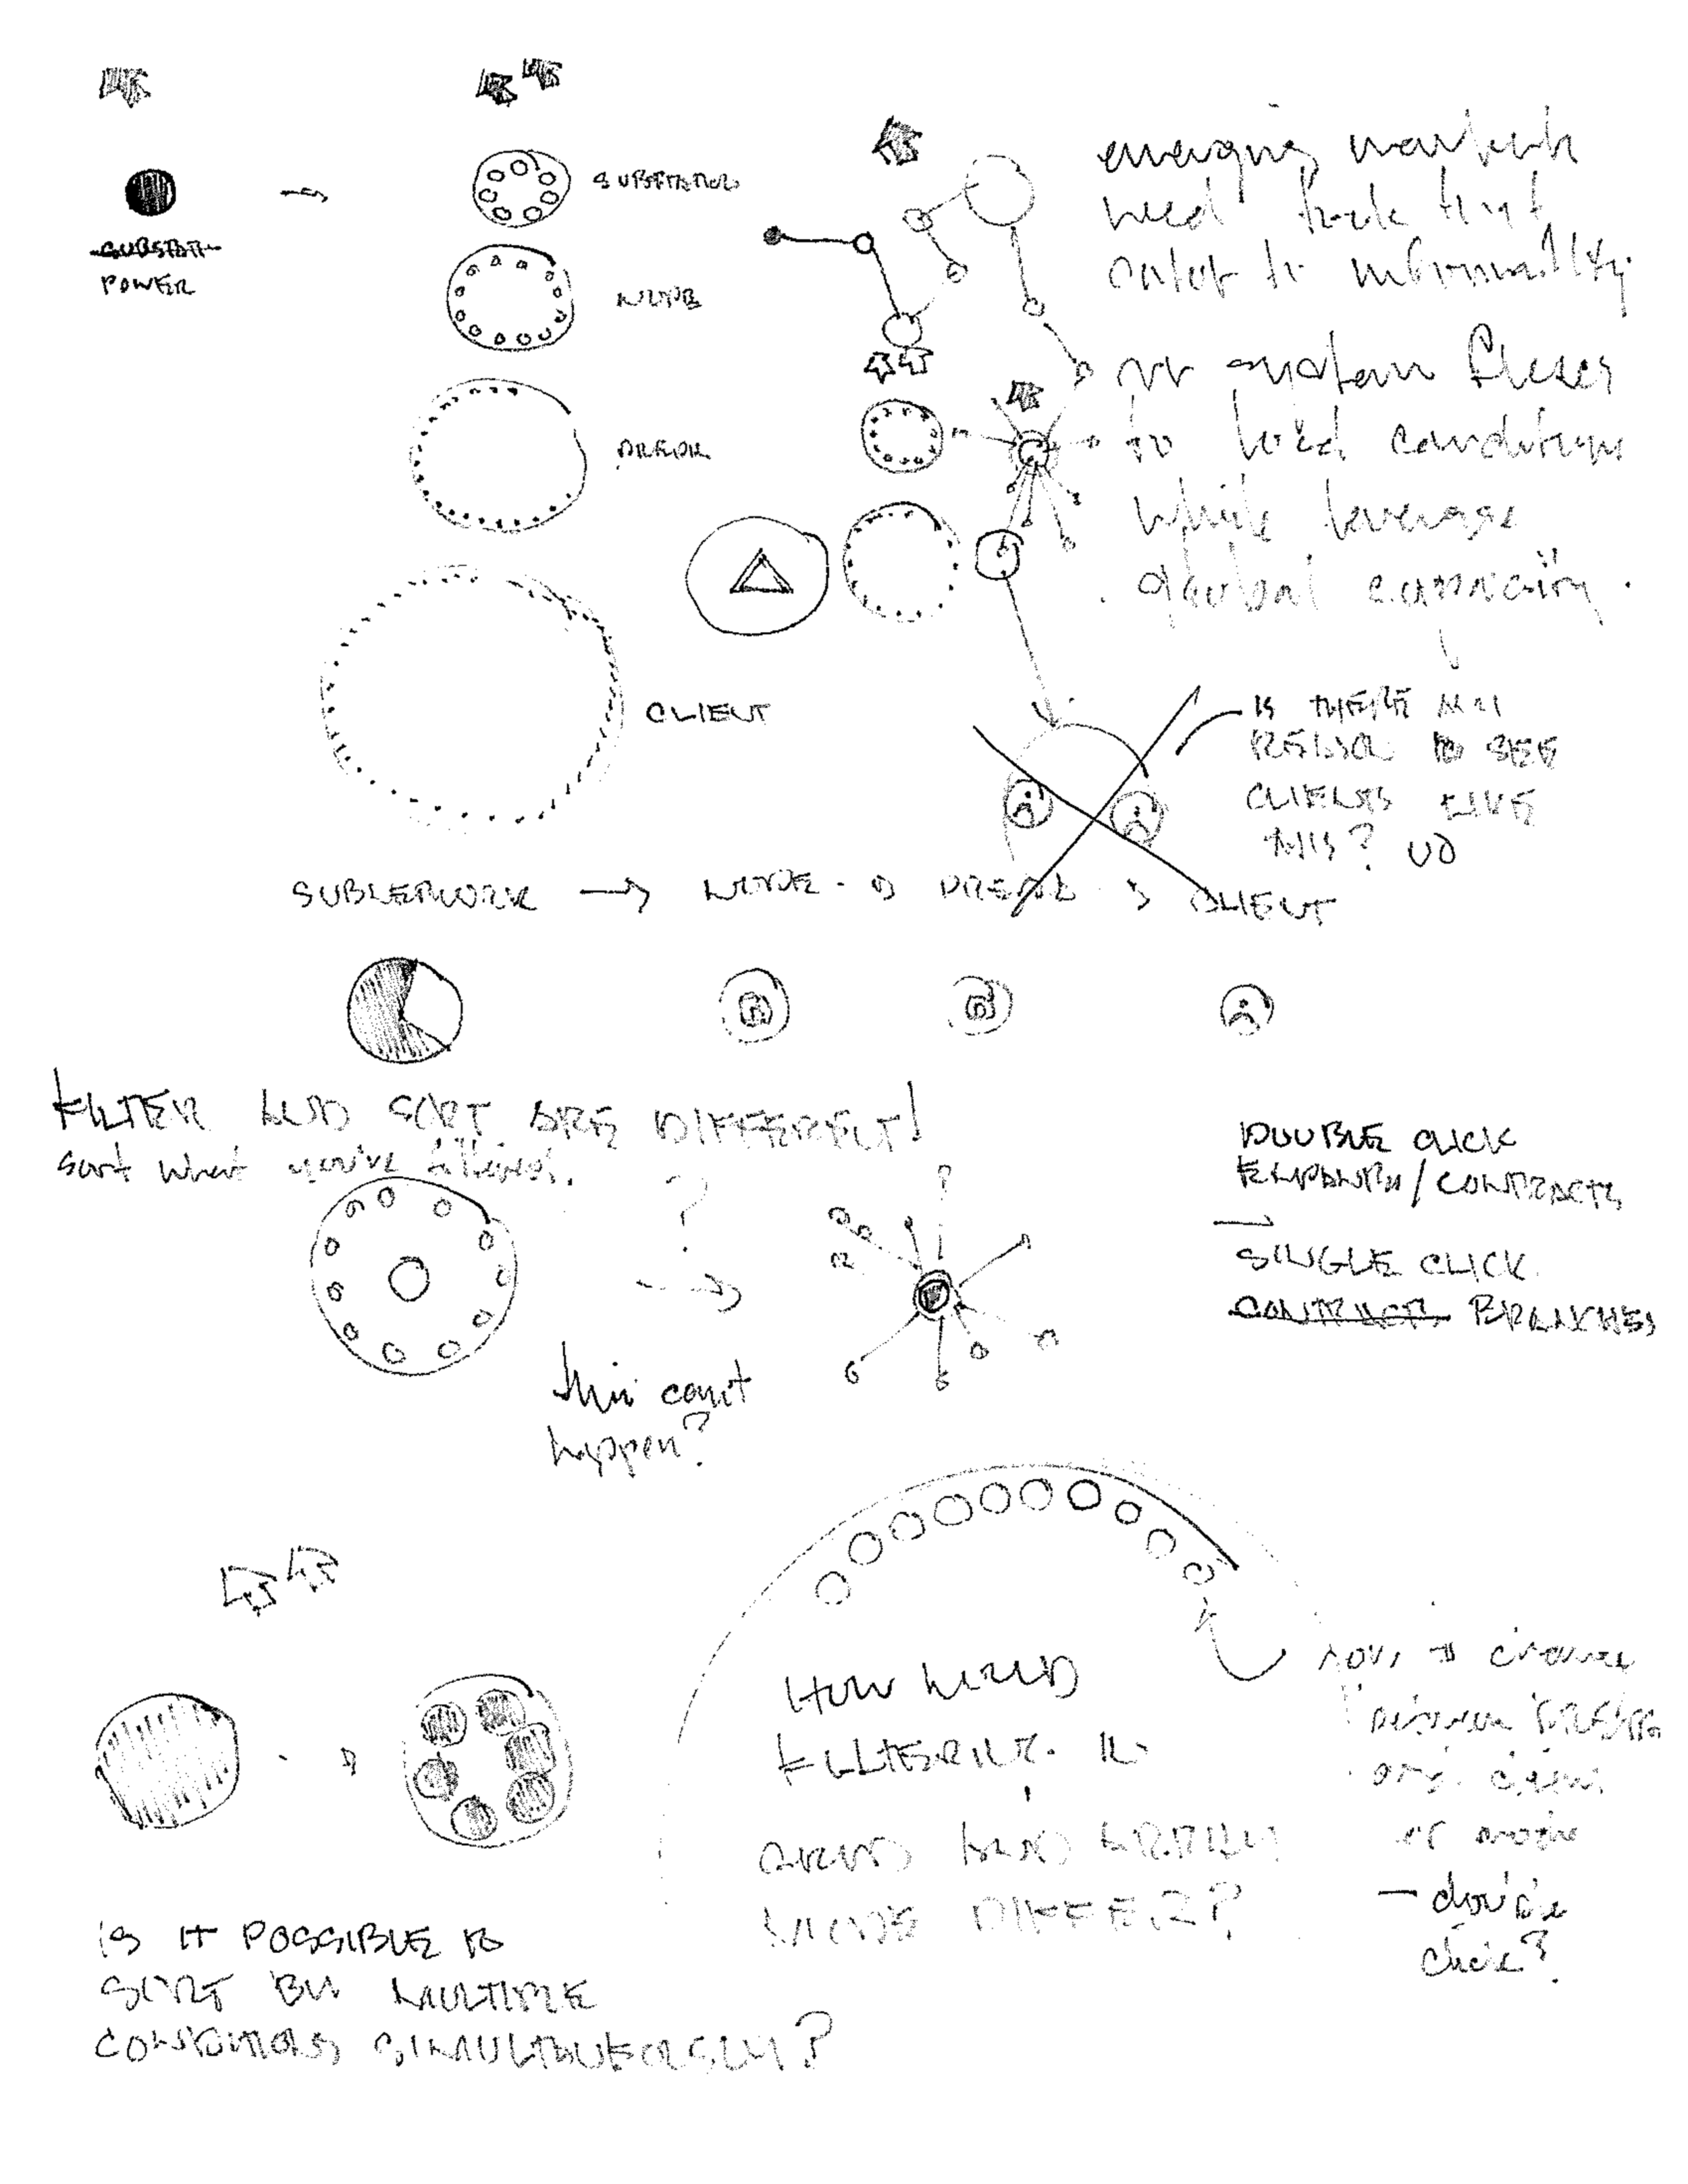 SUBSTATION
POWER
NODE
CLIENT
emerging markets
need tools that
cater to informality.
our system flexes
to local conditions
while leverage
global capacity.
IS THERE ANY
REASON TO SEE
CLIENTS LIKE
THIS? NO
SUBNETWORK → NODE → → CLIENT
FILTER AND SORT ARE DIFFERENT!
sort what you've filtered.
?
DOUBLE CLICK
EXPANDS / CONTRACTS
SINGLE CLICK
CONTRACTS BRANCHES
this can't
happen?
HOW WOULD
FILTERING IN
AND
MODE DIFFER?
how to change
between
or another
— double
click?
IS IT POSSIBLE TO
SORT BY MULTIPLE
CONDITIONS SIMULTANEOUSLY?